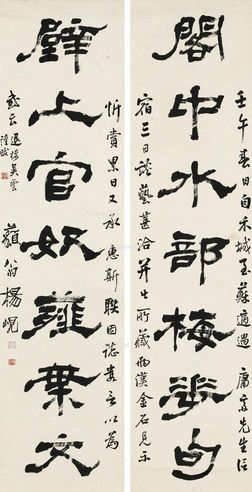 壬午春日自木城至蘇適過 先生信
閣中水部梅花句
宿三日談藝甚洽并出所藏兩漢金石見示
忻賞累日又承 惠新聯因誌數言以為
壁上官奴薤葉文
藐翁楊峴